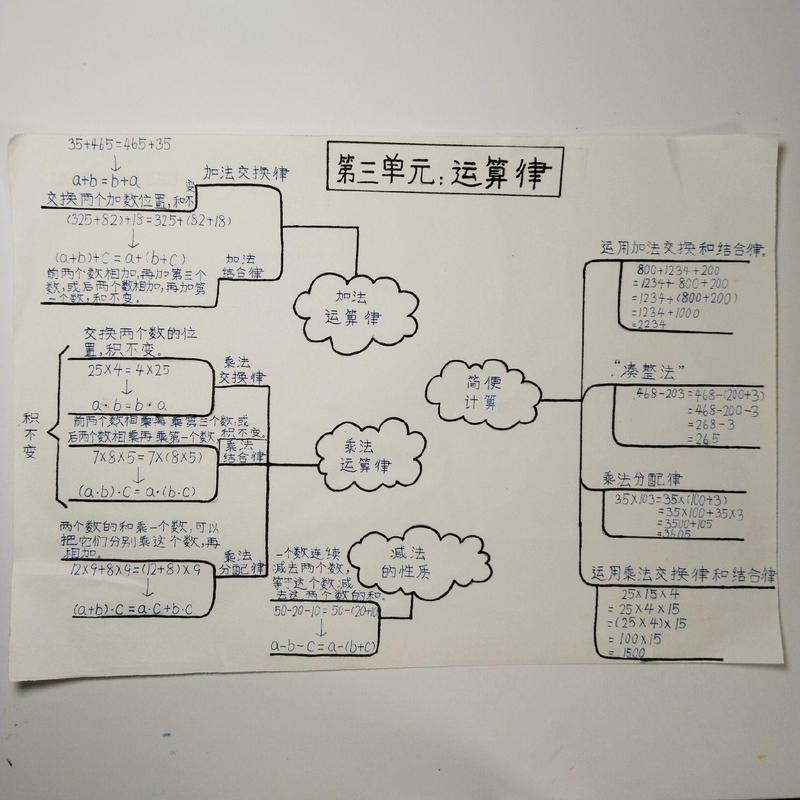 第三单元:运算律
35+465=465+35
a+b=b+a
交换两个加数位置,和不变
加法交换律
(325+82)+18=325+(82+18)
(a+b)+c=a+(b+c)
前两个数相加,再加第三个
数;或后两个数相加,再加第
一个数,和不变。
加法
结合律
加法
运算律
交换两个数的位
置,积不变。
25×4=4×25
a·b=b·a
乘法
交换律
积不变
前两个数相乘再乘第三个数;或
后两个数相乘再乘第一个数
积不变。
7×8×5=7×(8×5)
(a·b)·c=a·(b·c)
乘法
结合律
乘法
运算律
两个数的和乘一个数,可以
把它们分别乘这个数,再
相加。
12×9+8×9=(12+8)×9
(a+b)·c=a·c+b·c
乘法
分配律
减法
的性质
一个数连续
减去两个数,
等于这个数减
去这两个数的和。
50-20-10=50-(20+10
a-b-c=a-(b+c)
简便
计算
运用加法交换和结合律。
800+1234+200
=1234+800+200
=1234+(800+200)
=1234+1000
=2234
“凑整法”
468-203=468-(200+3)
=468-200-3
=268-3
=265
乘法分配律
35×103=35×(100+3)
=35×100+35×3
=3500+105
=3605
运用乘法交换律和结合律
25×15×4
=25×4×15
=(25×4)×15
=100×15
=1500